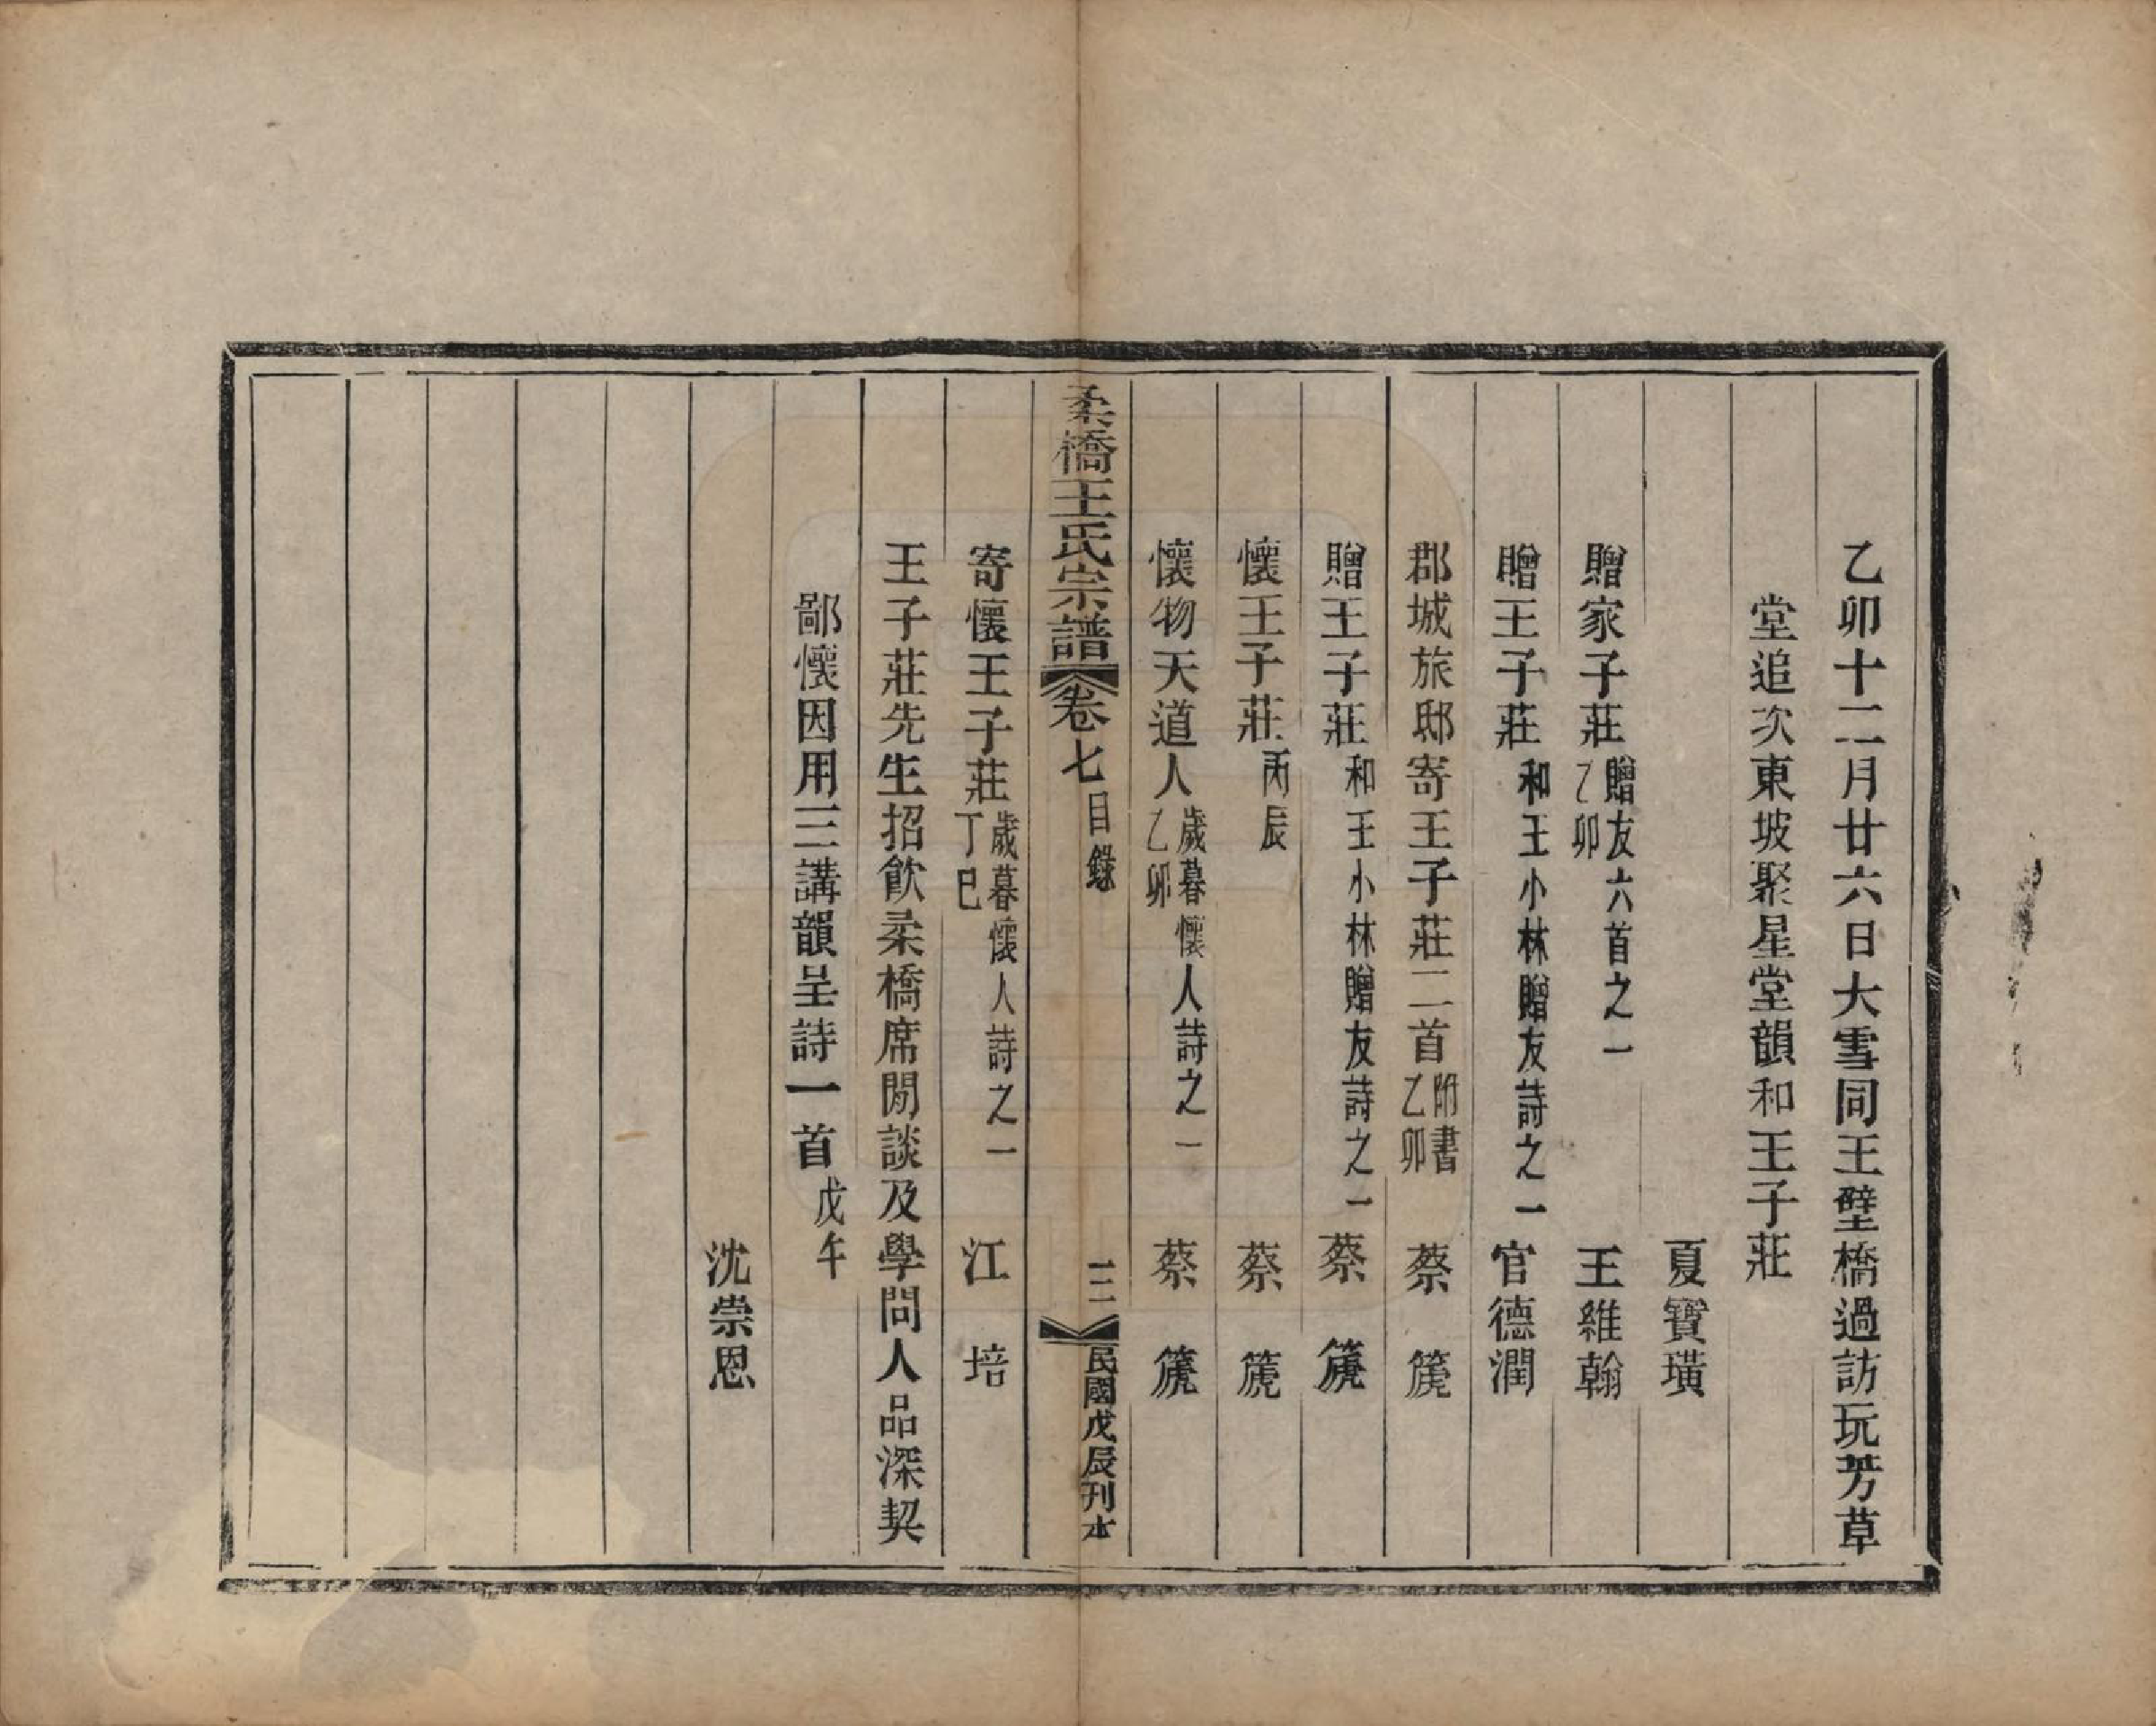 乙卯十二月廿六日大雪同王壁橋過訪玩芳草
堂追次東坡聚星堂韻和王子莊
夏寶璜
贈家子莊贈友六首之一乙卯 王維翰
贈王子莊和王小林贈友詩之一 官德潤
郡城旅邸寄王子莊二首附書乙卯 蔡篪
贈王子莊和王小林贈友詩之一 蔡篪
懷王子莊丙辰 蔡篪
懷物天道人歲暮懷人詩之一乙卯 蔡篪
柔橋王氏宗譜 卷七 目錄 三 民國戊辰刊本
寄懷王子莊歲暮懷人詩之一丁巳 江培
王子莊先生招飲柔橋席閒談及學問人品深契
鄙懷因用三講韻呈詩一首戊午
沈崇恩